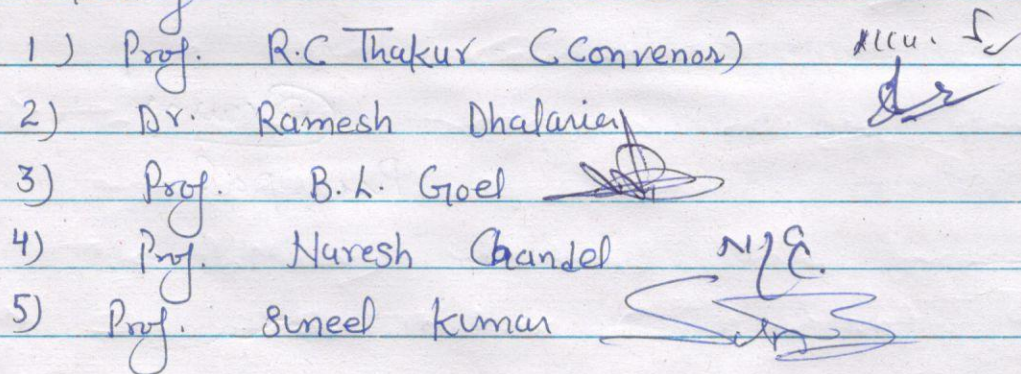 1) Prof. R.C Thakur (Convenor)
2) Dr. Ramesh Dhalaria
3) Prof. B.L. Goel
4) Prof. Naresh Chandel N/C.
5) Prof. Suneel Kumar